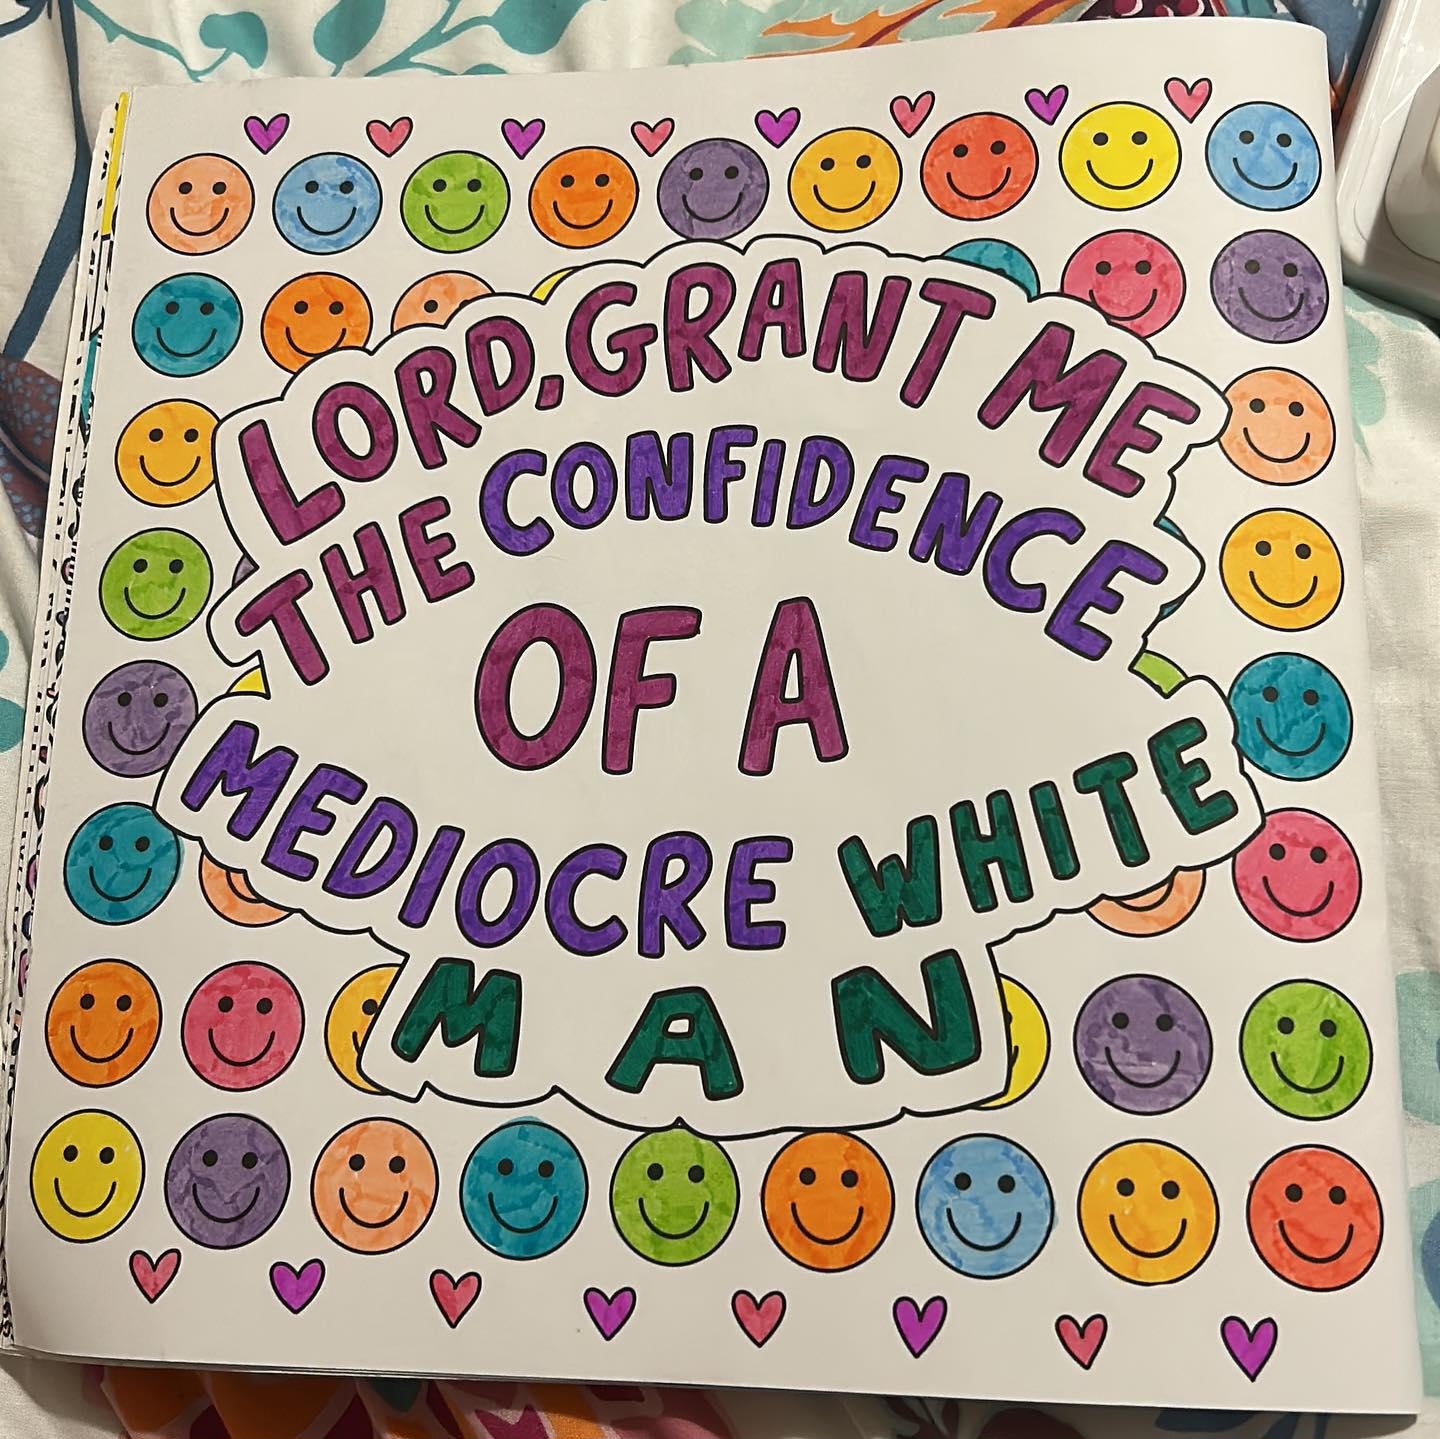 LORD, GRANT ME
THE CONFIDENCE
OF A
MEDIOCRE WHITE
MAN